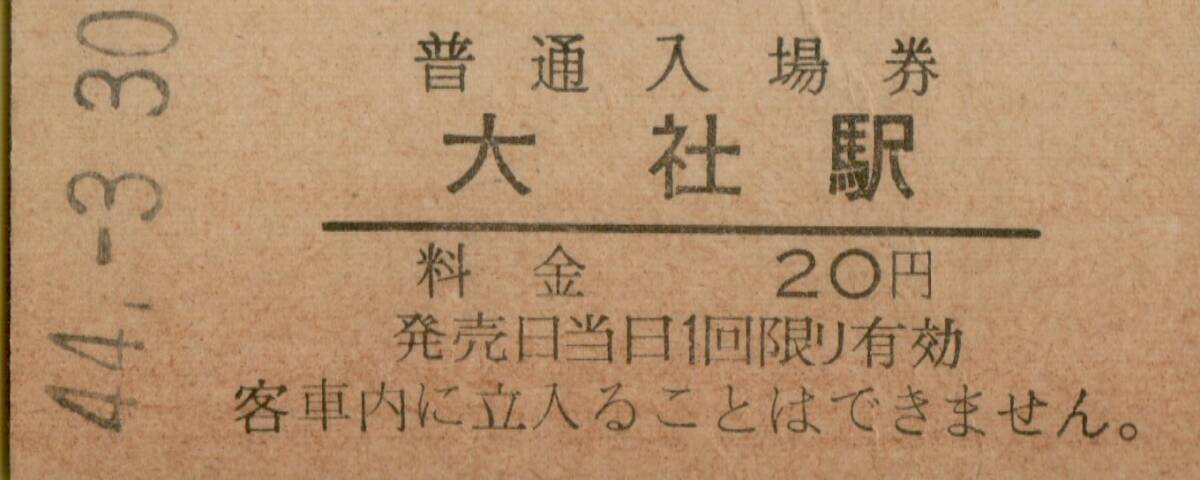 44.-3 30
普通入場券
大社駅
料金 20円
発売日当日1回限り有効
客車内に立入ることはできません。